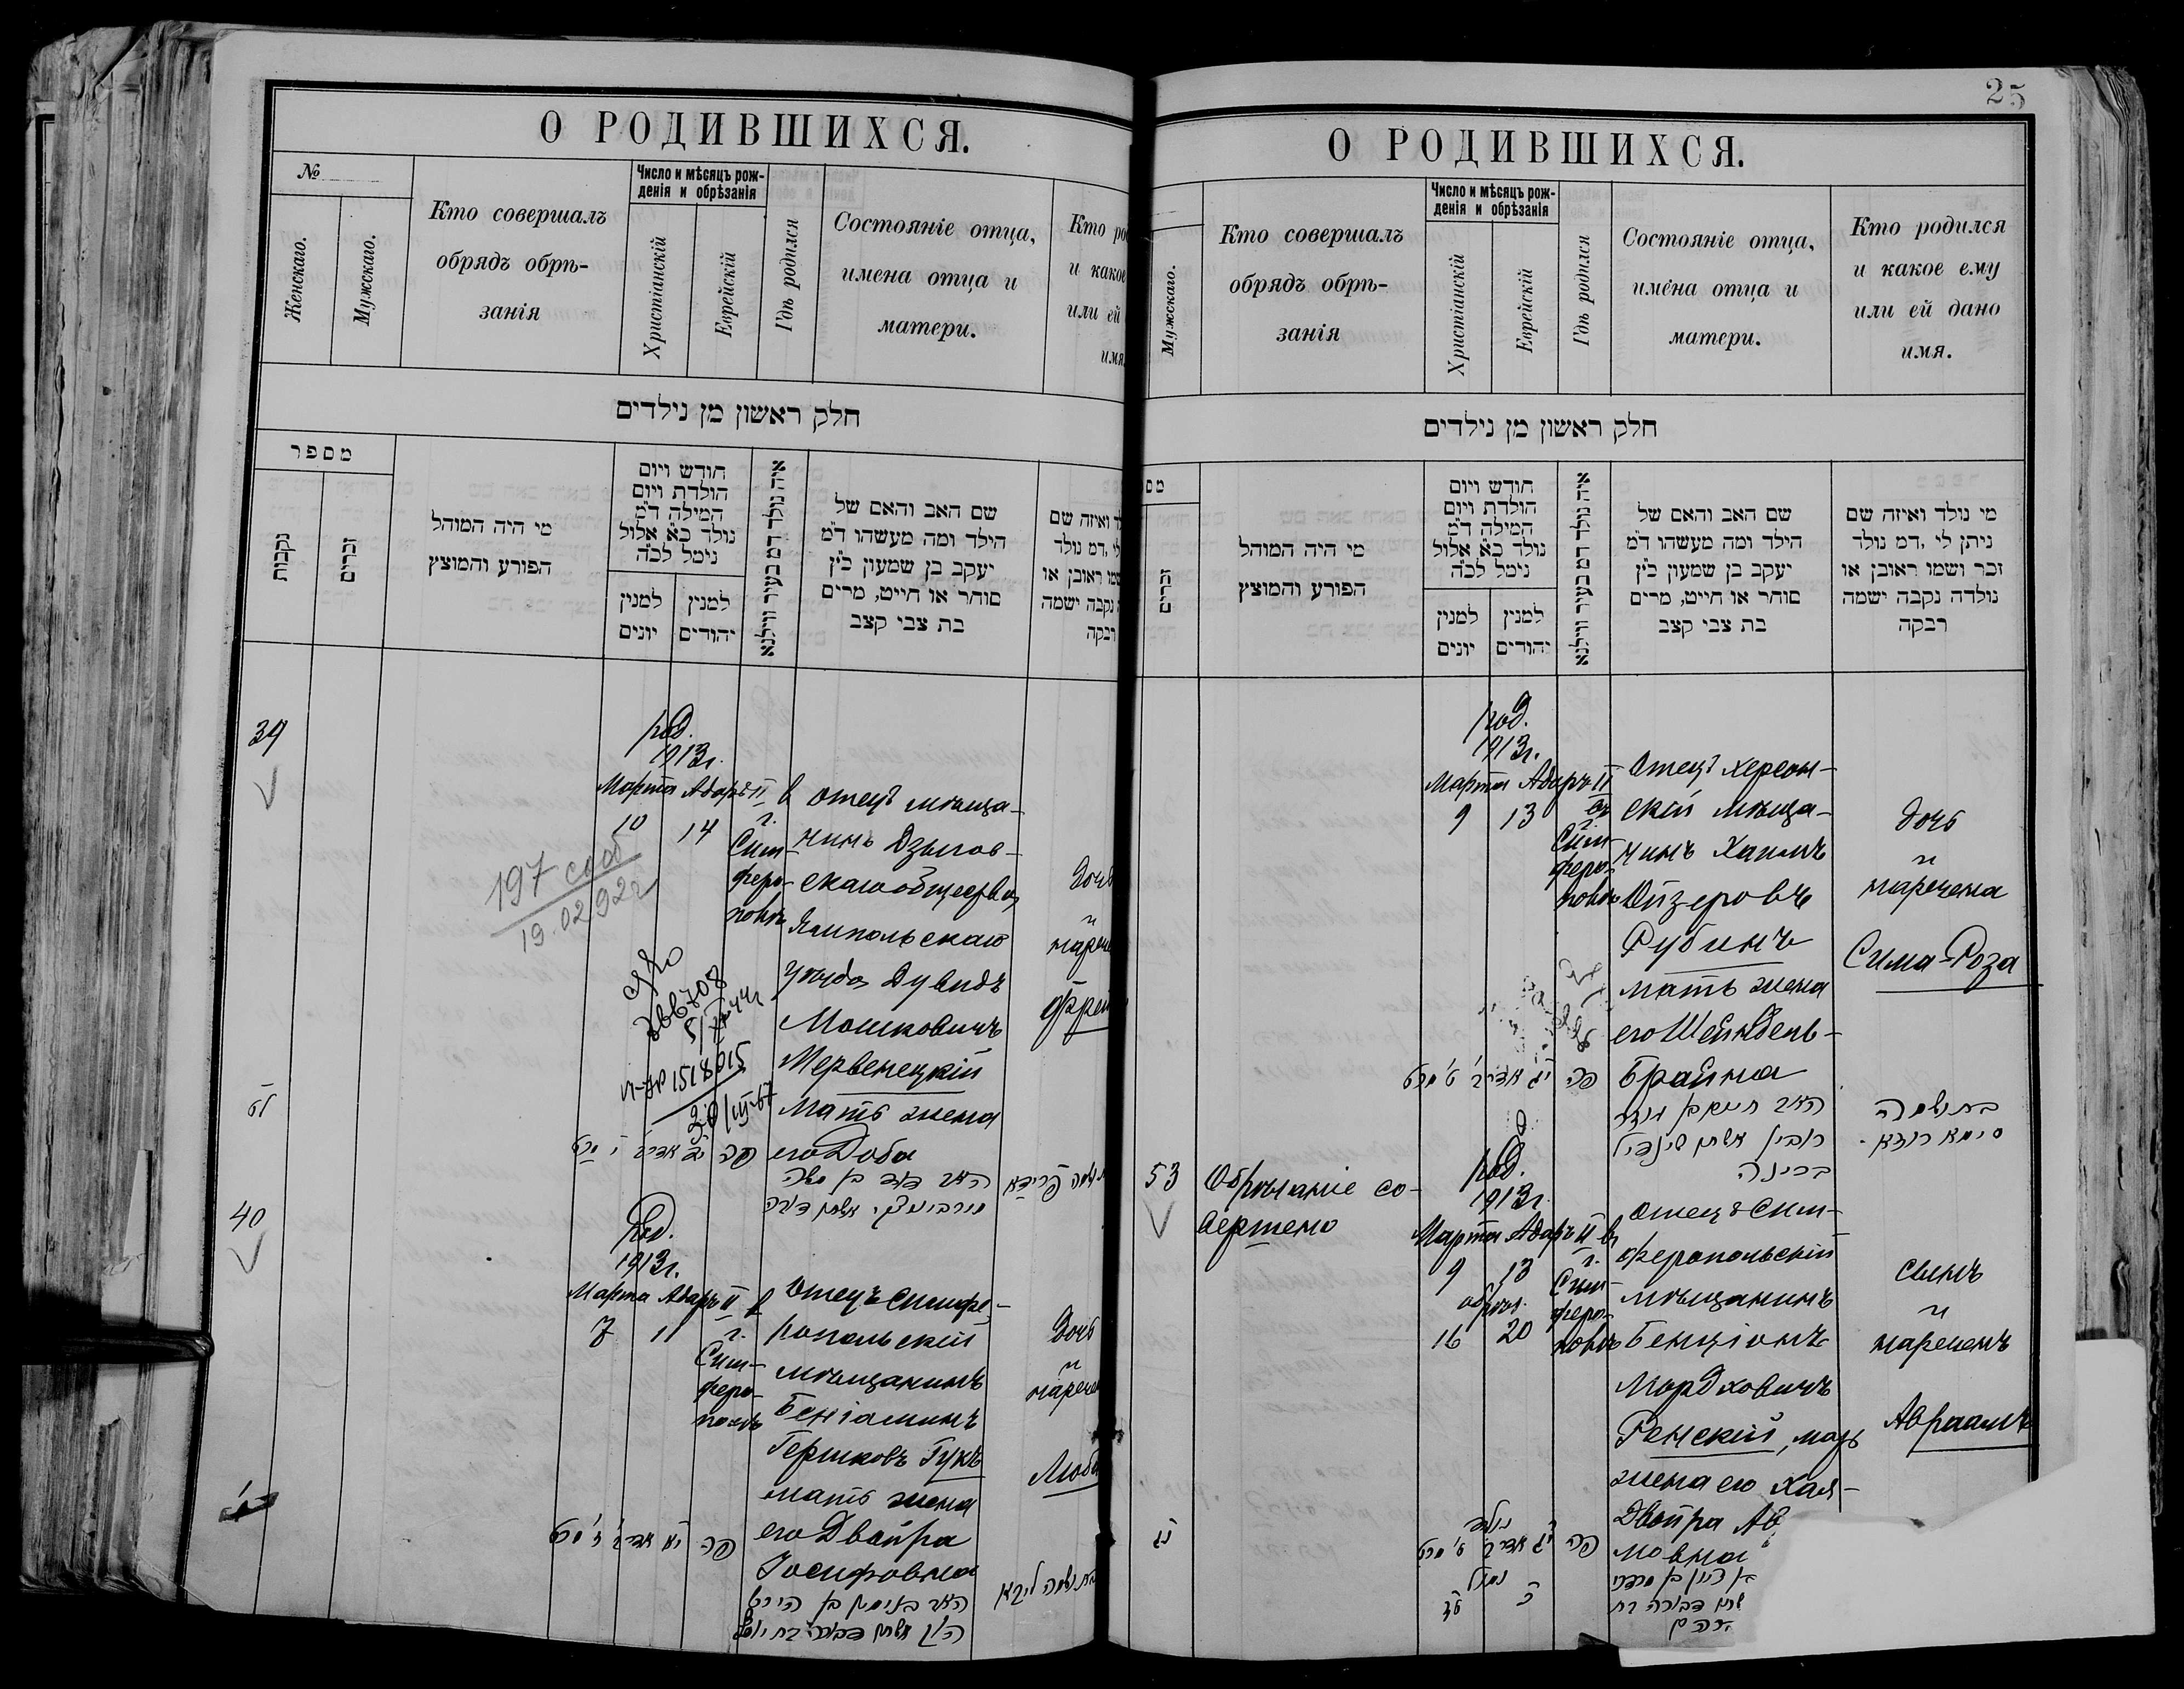 О РОДИВШИХСЯ.
№
Женскаго.
Мужскаго.
Кто совершалъ
обрядъ обрѣ-
занія
Число и мѣсяцъ рож-
денія и обрѣзанія
Христіанскій
Еврейскій
Гдѣ родился
Состояніе отца,
имена отца и
матери.
Кто ро
и какое
или ей
имя
חלק ראשון מן נילדים
מספר
נקבות
זכרים
מי היה המוהל
הפורע והמוצץ
חודש ויום
הולדת ויום
המילה ד"מ
נולד כא אלול
נימל לכ"ה
למנין
יונים
למנין
יהודים
איה נולד דמ בעיר ווילנא
שם האב והאם של
הילד ומה מעשהו ד"מ
יעקב בן שמעון כ"ץ
סוחר או חייט, מרים
בת צבי קצב
ואיזה שם
לי, דמ נולד
ראובן או
נקבה ישמה
רבקה
39
род.
1913г.
Марта Адаръ II
10 14
в
г.
Сим-
феро-
полѣ
отецъ мѣща-
нинъ Дзыгов-
скаго общества
Ямпольскаго
уѣзда Дувидъ
Мошковичъ
Мервенецкій
мать жена
его Доба
дочь
и
нарече
Фрей
197 сооб
19.02.92г
לט
פה
האב דוד בן משה
אשתו דובה
40
Род.
1913г.
Марта Адаръ II
7 11
в
г.
Сим-
феро-
полѣ
Отецъ симфе-
ропольскій
мѣщанинъ
Беніаминъ
Гершковъ Гукъ
мать жена
его Двойра
Іосифовна
дочь
и
нарече
Люба
מ
פה
האב בנימין בן הירש
הוק אשתו דבורה בת יוסף
25
О РОДИВШИХСЯ.
Мужскаго.
Кто совершалъ
обрядъ обрѣ-
занія
Число и мѣсяцъ рож-
денія и обрѣзанія
Христіанскій
Еврейскій
Гдѣ родился
Состояніе отца,
имена отца и
матери.
Кто родился
и какое ему
или ей дано
имя.
חלק ראשון מן נילדים
מס
זכרים
מי היה המוהל
הפורע והמוצץ
חודש ויום
הולדת ויום
המילה ד"מ
נולד כא אלול
נימל לכ"ה
למנין
יונים
למנין
יהודים
איה נולד דמ בעיר ווילנא
שם האב והאם של
הילד ומה מעשהו ד"מ
יעקב בן שמעון כ"ץ
סוחר או חייט, מרים
בת צבי קצב
מי נולד ואיזה שם
ניתן לי, דמ נולד
זכר ושמו ראובן או
נולדה נקבה ישמה
רבקה
род.
1913г.
Марта Адаръ II
9 13
въ
г.
Сим-
феро-
полѣ
Отецъ херсон-
скій мѣща-
нинъ Хаимъ
Ойзеровъ
Рубинъ
мать жена
его Шейндель-
Брайна
дочь
и
наречена
Сима-Роза
פה
האב חיים בן
רובין אשתו שיינדיל
בריינה
בת ושמה
סימא רוזא
53
Обрѣзаніе со-
вершено
род.
1913г.
Марта Адаръ II
9 13
обрѣз.
16 20
въ
г.
Сим-
феро-
полѣ
отецъ Сим-
феропольскій
мѣщанинъ
Бенціонъ
Мордковичъ
Ренскій, мать
жена его Хая-
Двойра Ав
мовна
сынъ
и
нареченъ
Авраамъ
נג
נולד
פה
נמול
ציון בן מרדכי
דבורה בת